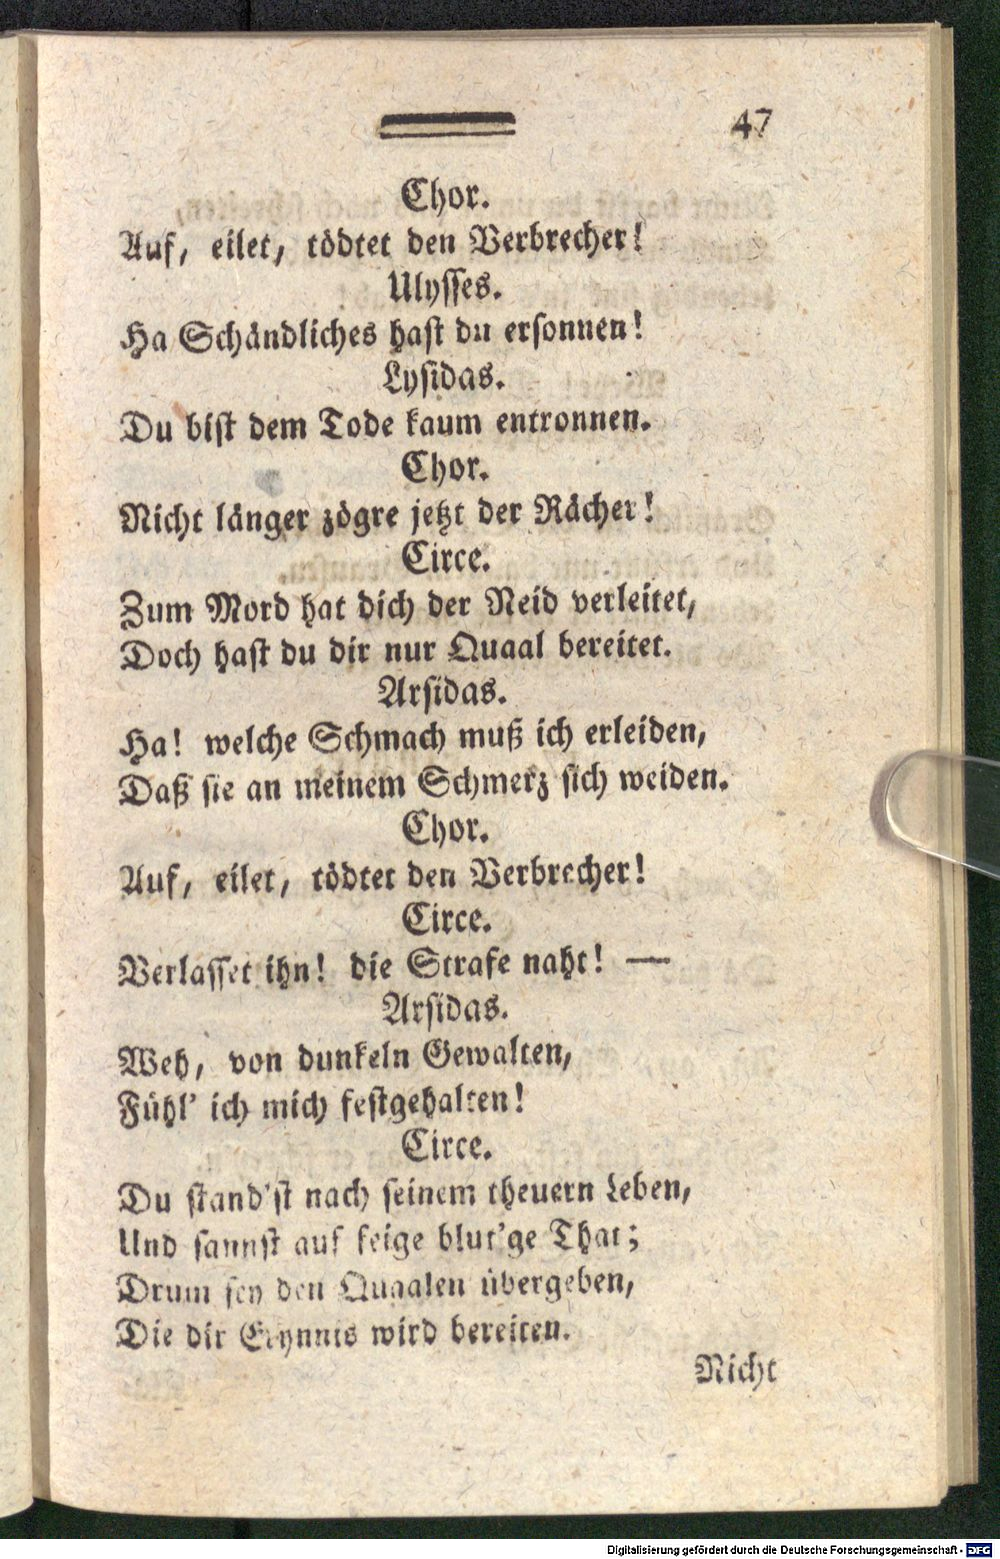 47
Chor.
Auf, eilet, tödtet den Verbrecher!
Ulysses.
Ha Schändliches hast du ersonnen!
Lysidas.
Du bist dem Tode kaum entronnen.
Chor.
Nicht länger zögre jetzt der Rächer!
Circe.
Zum Mord hat dich der Neid verleitet,
Doch hast du dir nur Quaal bereitet.
Arsidas.
Ha! welche Schmach muß ich erleiden,
Daß sie an meinem Schmerz sich weiden.
Chor.
Auf, eilet, tödtet den Verbrecher!
Circe.
Verlasset ihn! die Strafe naht! —
Arsidas.
Weh, von dunkeln Gewalten,
Fühl' ich mich festgehalten!
Circe.
Du stand'st nach seinem theuern Leben,
Und sannst auf feige blut'ge That;
Drum sey den Quaalen übergeben,
Die dir Erynnis wird bereiten.
Nicht
Digitalisierung gefördert durch die Deutsche Forschungsgemeinschaft - DFG